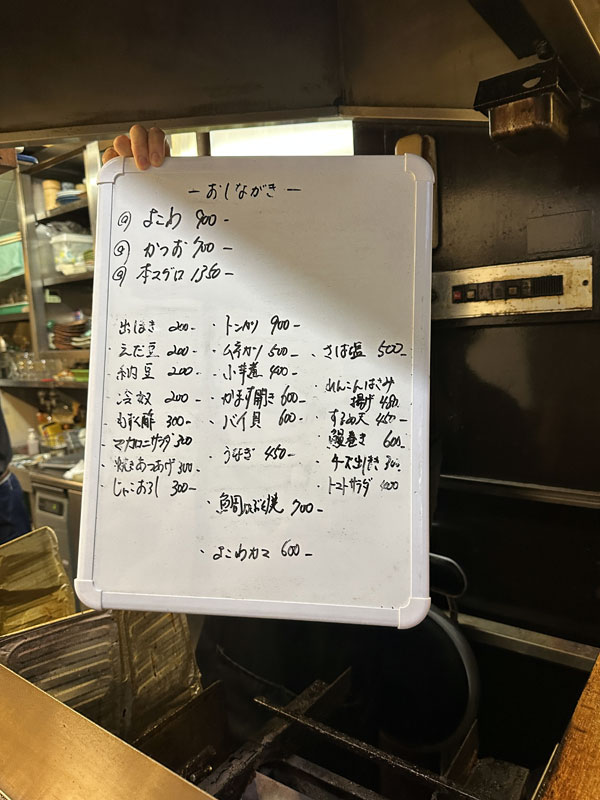 ー おしながき ー
よこわ 900-
かつお 700-
本マグロ 1350-
出し巻き 200-
えだ豆 200-
納豆 200-
冷奴 200-
もずく酢 300-
マカロニサラダ 300
焼きあつあげ 300-
じゃこおろし 300-
・トンカツ 900-
カツ 500-
・小芋煮 400-
・かます開き 600-
・バイ貝 600-
・うなぎ 450-
・さば塩 500-
れんこんはさみ
揚げ 480
・する天 450-
鰻巻き 600-
チーズ出し巻き 300
・トマトサラダ 400
・鯛かぶと焼 700-
・よこわカマ 600-